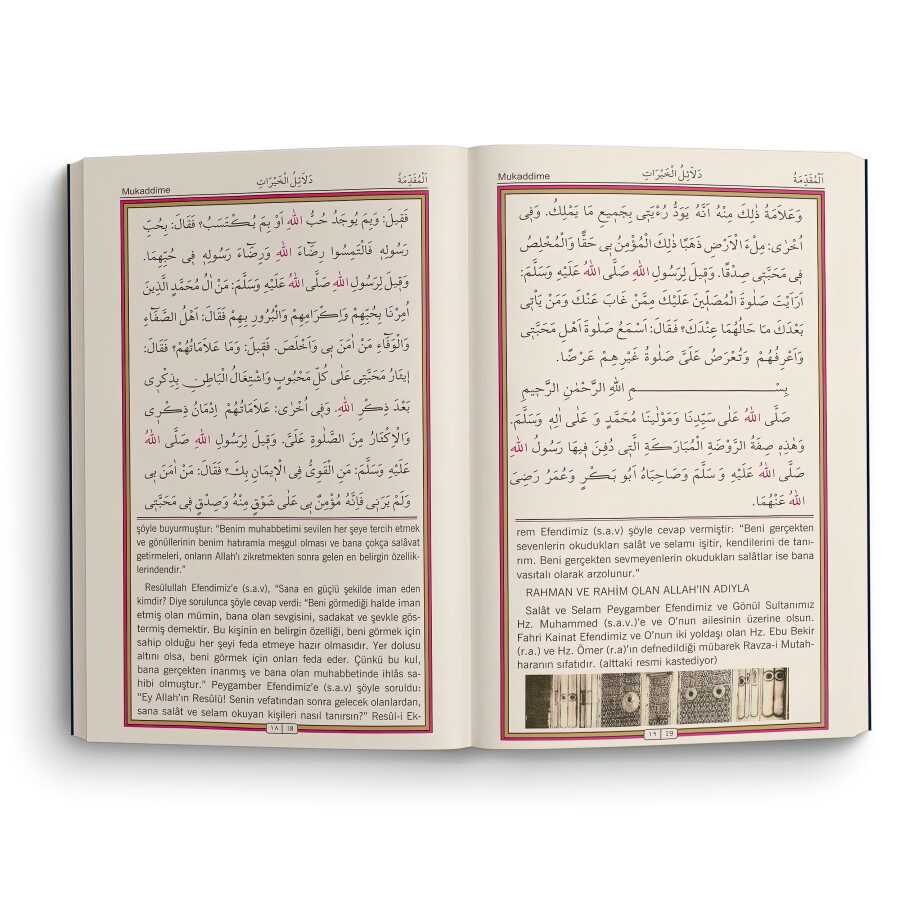 Mukaddime
دَلَائِلُ الْخَيْرَاتِ
اَلْمُقَدِّمَةُ
فَقِيلَ: وَبِمَ يُوجَدُ حُبُّ اللّٰهِ اَوْ بِمَ يُكْتَسَبُ؟ فَقَالَ: بِحُبِّ
رَسُولِهِ فَالْتَمِسُوا رِضَٓاءَ اللّٰهِ وَرِضَٓاءَ رَسُولِهِ فِي حُبِّهِمَا.
وَقِيلَ لِرَسُولِ اللّٰهِ صَلَّى اللّٰهُ عَلَيْهِ وَسَلَّمَ: مَنْ اٰلُ مُحَمَّدٍ الَّذِينَ
اُمِرْنَا بِحُبِّهِمْ وَاِكْرَامِهِمْ وَالْبُرُورِ بِهِمْ فَقَالَ: اَهْلُ الصَّفَٓاءِ
وَالْوَفَٓاءِ مَنْ اٰمَنَ بِي وَاَخْلَصَ. فَقِيلَ: وَمَا عَلَامَاتُهُمْ؟ فَقَالَ:
اِيثَارُ مَحَبَّتِي عَلٰى كُلِّ مَحْبُوبٍ وَاشْتِغَالُ الْبَاطِنِ بِذِكْرِي
بَعْدَ ذِكْرِ اللّٰهِ. وَفِي اُخْرٰى: عَلَامَاتُهُمْ اِدْمَانُ ذِكْرِي
وَالْاِكْثَارُ مِنَ الصَّلٰوةِ عَلَيَّ. وَقِيلَ لِرَسُولِ اللّٰهِ صَلَّى اللّٰهُ
عَلَيْهِ وَسَلَّمَ: مَنِ الْقَوِيُّ فِي الْاِيمَانِ بِكَ؟ فَقَالَ: مَنْ اٰمَنَ بِي
وَلَمْ يَرَنِي فَاِنَّهُ مُؤْمِنٌ بِي عَلٰى شَوْقٍ مِنْهُ وَصِدْقٍ فِي مَحَبَّتِي
şöyle buyurmuştur: "Benim muhabbetimi sevilen her şeye tercih etmek
ve gönüllerinin benim hatıramla meşgul olması ve bana çokça salâvat
getirmeleri, onların Allah'ı zikretmekten sonra gelen en belirgin özellik-
lerindendir."
Resûlullah Efendimiz'e (s.a.v), "Sana en güçlü şekilde iman eden
kimdir? Diye sorulunca şöyle cevap verdi: "Beni görmediği halde iman
etmiş olan mümin, bana olan sevgisini, sadakat ve şevkle gös-
termiş demektir. Bu kişinin en belirgin özelliği, beni görmek için
sahip olduğu her şeyi feda etmeye hazır olmasıdır. Yer dolusu
altını olsa, beni görmek için onları feda eder. Çünkü bu kul,
bana gerçekten inanmış ve bana olan muhabbetinde ihlâs sa-
hibi olmuştur." Peygamber Efendimiz'e (s.a.v) şöyle soruldu:
"Ey Allah'ın Resûlü! Senin vefatından sonra gelecek olanlardan,
sana salât ve selam okuyan kişileri nasıl tanırsın?" Resûl-i Ek-
١٨ 18
Mukaddime
دَلَائِلُ الْخَيْرَاتِ
اَلْمُقَدِّمَةُ
وَعَلَامَةُ ذٰلِكَ مِنْهُ اَنَّهُ يَوَدُّ رُءْيَتِي بِجَمِيعِ مَا يَمْلِكُ. وَفِي
اُخْرٰى: مِلْءَ الْاَرْضِ ذَهَبًا ذٰلِكَ الْمُؤْمِنُ بِي حَقًّا وَالْمُخْلِصُ
فِي مَحَبَّتِي صِدْقًا. وَقِيلَ لِرَسُولِ اللّٰهِ صَلَّى اللّٰهُ عَلَيْهِ وَسَلَّمَ:
اَرَاَيْتَ صَلٰوةَ الْمُصَلِّينَ عَلَيْكَ مِمَّنْ غَابَ عَنْكَ وَمَنْ يَأْتِي
بَعْدَكَ مَا حَالُهُمَا عِنْدَكَ؟ فَقَالَ: اَسْمَعُ صَلٰوةَ اَهْلِ مَحَبَّتِي
وَاَعْرِفُهُمْ وَتُعْرَضُ عَلَيَّ صَلٰوةُ غَيْرِهِمْ عَرْضًا.
بِسْمِ اللّٰهِ الرَّحْمٰنِ الرَّحِيمِ
صَلَّى اللّٰهُ عَلٰى سَيِّدِنَا وَمَوْلٰينَا مُحَمَّدٍ وَ عَلٰى اٰلِهِ وَسَلَّمَ.
وَهٰذِهِ صِفَةُ الرَّوْضَةِ الْمُبَارَكَةِ الَّتِي دُفِنَ فِيهَا رَسُولُ اللّٰهِ
صَلَّى اللّٰهُ عَلَيْهِ وَ سَلَّمَ وَصَاحِبَاهُ اَبُو بَكْرٍ وَعُمَرُ رَضِيَ
اللّٰهُ عَنْهُمَا.
rem Efendimiz (s.a.v) şöyle cevap vermiştir: "Beni gerçekten
sevenlerin okudukları salât ve selamı işitir, kendilerini de tanı-
rım. Beni gerçekten sevmeyenlerin okudukları salâtlar ise bana
vasıtalı olarak arzolunur."
RAHMAN VE RAHİM OLAN ALLAH'IN ADIYLA
Salât ve Selam Peygamber Efendimiz ve Gönül Sultanımız
Hz. Muhammed (s.a.v.)'e ve O'nun ailesinin üzerine olsun.
Fahri Kainat Efendimiz ve O'nun iki yoldaşı olan Hz. Ebu Bekir
(r.a.) ve Hz. Ömer (r.a)'ın defnedildiği mübarek Ravza-i Mutah-
haranın sıfatıdır. (alttaki resmi kastediyor)
١٩ 19